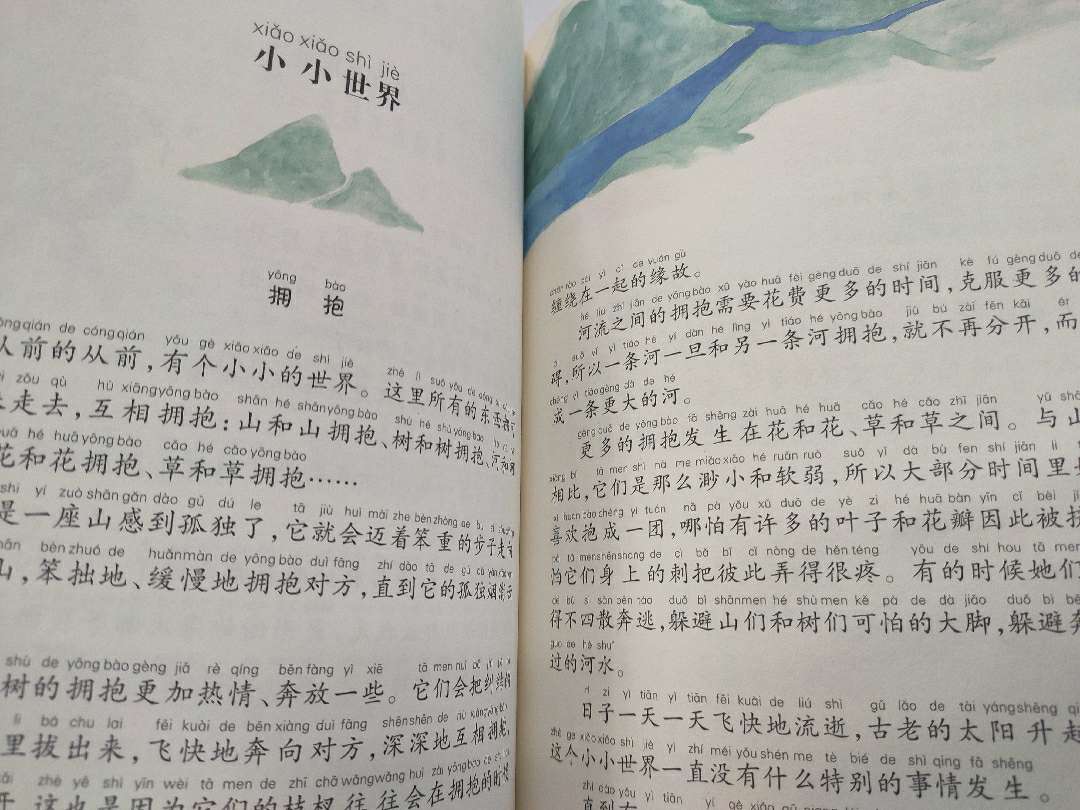 xiǎo xiǎo shì jiè
小小世界
yōng bào
拥抱
cóngqián de cóngqián yǒu gè xiǎo xiǎo de shì jiè zhè lǐ suǒ yǒu de
从前的从前，有个小小的世界。这里所有的东西都
zǒu qù hù xiāngyōng bào shān hé shānyōng bào shù hé shù yōng bào
走去，互相拥抱：山和山拥抱、树和树拥抱、河和河
huā hé huā yōng bào cǎo hé cǎo yōng bào
花和花拥抱、草和草拥抱……
shì yí zuò shān gǎn dào gū dú le tā jiù huì mài zhe bènzhòng de bù
是一座山感到孤独了，它就会迈着笨重的步子走
shān bènzhuō de huǎnmàn de yōng bào duì fāng zhí dào tā de gū dú
山，笨拙地、缓慢地拥抱对方，直到它的孤独
shù de yōng bào gèng jiā rè qíng bēn fàng yì xiē tā men huì bǎ
树的拥抱更加热情、奔放一些。它们会把
lǐ bá chū lái fēi kuài de bēn xiàng duì fāng shēnshēn de hù xiāng
里拔出来，飞快地奔向对方，深深地互相拥抱，
zhè yě shì yīn wèi tā men de zhī chà wǎngwǎng huì zài yōng bào de
这也是因为它们的枝杈往往会在拥抱的时候
缠绕在一起的缘故。
hé liú zhī jiān de yōng bào xū yào huā fèi gèng duō de shí jiān kè fú gèng duō de
河流之间的拥抱需要花费更多的时间，克服更多的
suǒ yǐ yì tiáo hé yí dàn hé lìng yì tiáo hé yōng bào jiù bú zài fēn kāi ér
碍，所以一条河一旦和另一条河拥抱，就不再分开，而
chéng yì tiáo gèng dà de hé
成一条更大的河。
gèng duō de yōng bào fā shēng zài huā hé huā cǎo hé cǎo zhī jiān
更多的拥抱发生在花和花、草和草之间。与山
xiāng bǐ tā men shì nà me miǎo xiǎo hé ruǎn ruò suǒ yǐ dà bù fen shí jiān lǐ
相比，它们是那么渺小和软弱，所以大部分时间里
xǐ huan bào chéng yì tuán nǎ pà yǒu xǔ duō de yè zi hé huā bàn yīn cǐ bèi
喜欢抱成一团，哪怕有许多的叶子和花瓣因此被
pà tā menshēnshang de cì bǎ bǐ cǐ nòng de hěn téng yǒu de shí hou tā men
怕它们身上的刺把彼此弄得很疼。有的时候她们
dé bú sì sàn bēn táo duǒ bì shānmen hé shù men kě pà de dà jiǎo duǒ bì bēn
得不四散奔逃，躲避山们和树们可怕的大脚，躲避奔
guò de hé shuǐ
过的河水。
rì zi yì tiān yì tiān fēi kuài de liú shì gǔ lǎo de tài yáng shēng qǐ
日子一天一天飞快地流逝，古老的太阳升起
zhè ge xiǎo xiǎo shì jiè yì zhí méi yǒu shén me tè bié de shì qing fā shēng
这个小小世界一直没有什么特别的事情发生。